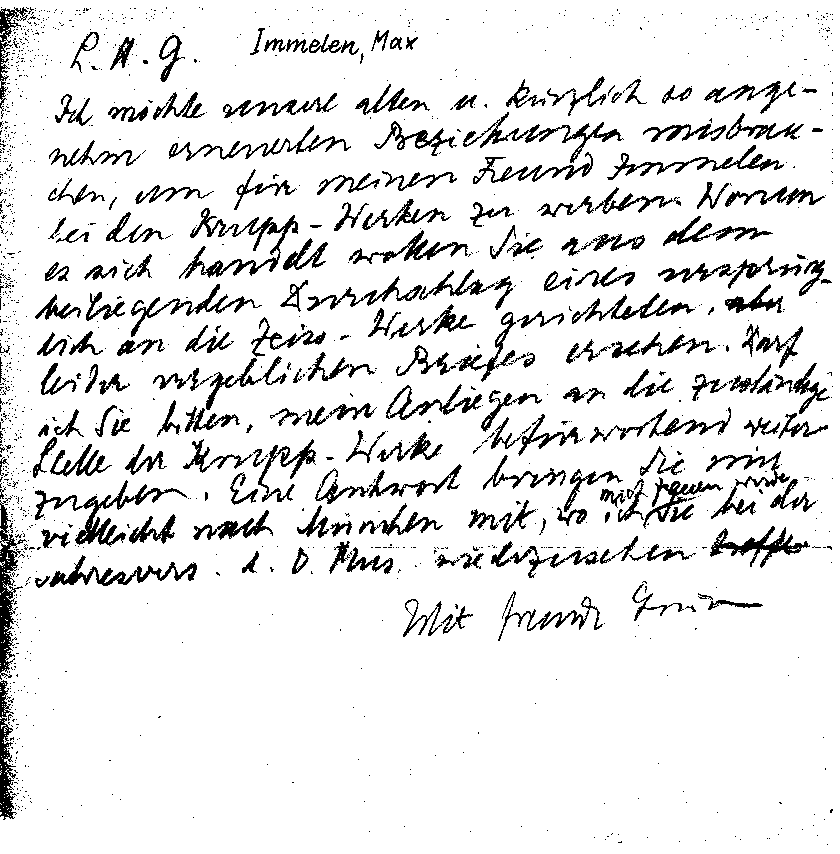 L. H. G. Immelen, Max
Ich möchte unsere alten u. kürzlich so ange-
nehm erneuerten Beziehungen misbrau-
chen, um für meinen Freund Immelen
bei den Krupp-Werken zu werben. Worum
es sich handelt wollen Sie aus dem
beiliegenden Durchschlag eines ursprüng-
lich an die Zeiss-Werke gerichteten, aber
leider vergeblichen Briefes ersehen. Darf
ich Sie bitten, mein Anliegen an die zuständige
Stelle der Krupp-Werke befürwortend weiter
zugeben. Eine Antwort bringen Sie mir
vielleicht nach München mit, wo ich mich freuen würde Sie bei der
Jahresvers. d. D. Mus. wiederzusehen
Mit freundl Gruß